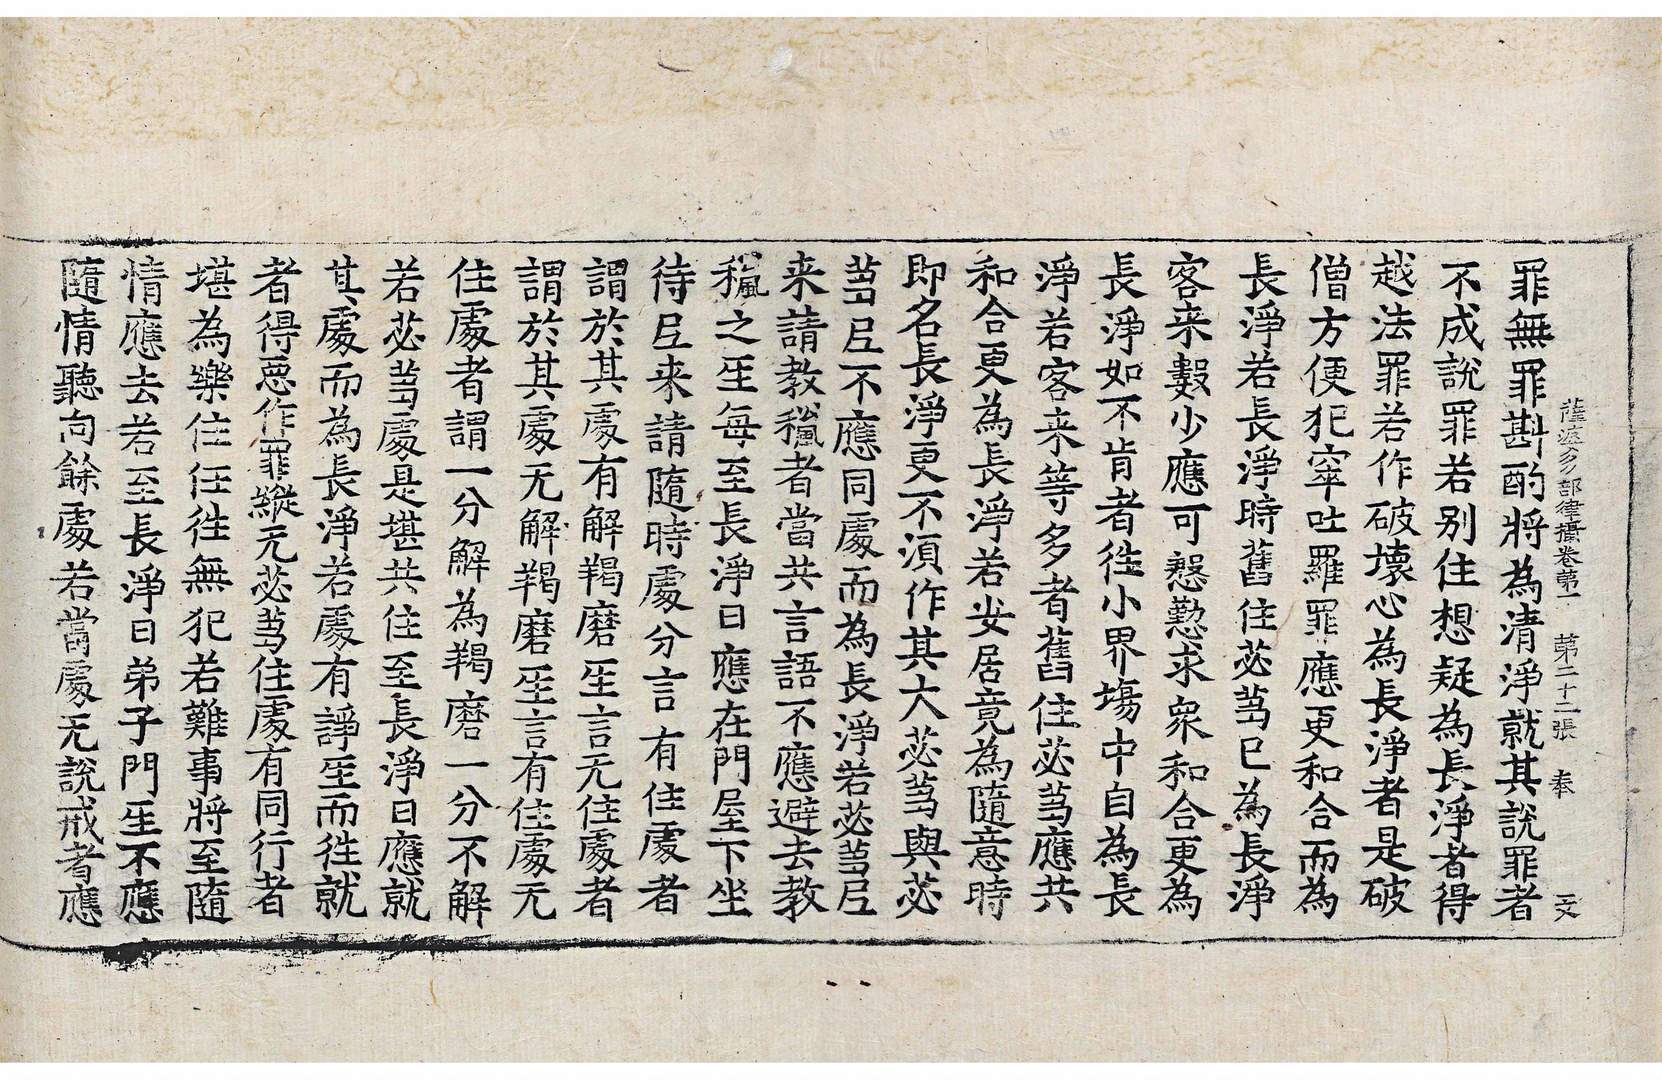 薩婆多部律攝卷第一 第二十二張 奉 文
罪無罪斟酌將為清淨就其說罪者
不成說罪若別住想疑為長淨者得
越法罪若作破壞心為長淨者是破
僧方便犯窣吐羅罪應更和合而為
長淨若長淨時舊住苾芻已為長淨
客来數少應可慇懃求衆和合更為
長淨如不肯者往小界塲中自為長
淨若客来等多者舊住苾芻應共
和合更為長淨若安居竟為隨意時
即名長淨更不湏作其大苾芻與苾
芻尼不應同處而為長淨若苾芻尼
来請教𧧼者當共言語不應避去教
𧧼之𤯔每至長淨日應在門屋下坐
待尼来請隨時處分言有住處者
謂於其處有解羯磨𤯔言无住處者
謂於其處无解羯磨𤯔言有住處无
住處者謂一分解為羯磨一分不解
若苾芻處是堪共住至長淨日應就
其處而為長淨若處有諍𤯔而往就
者得惡作罪縱无苾芻住處有同行者
堪為樂住任往無犯若難事將至隨
情應去若至長淨日弟子門𤯔不應
隨情聽向餘處若當處无說戒者應